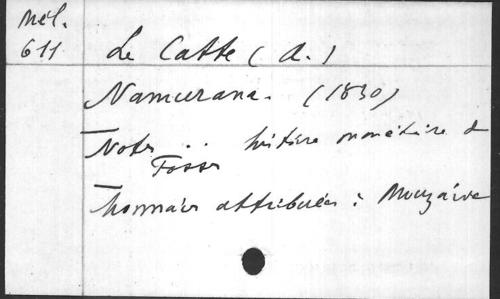 Mél.
611
Le Catte (A.)
Namurana. (1830)
Notes .. histoire monétaire d
Fosses
Monnaies attribuées à Mouzaive